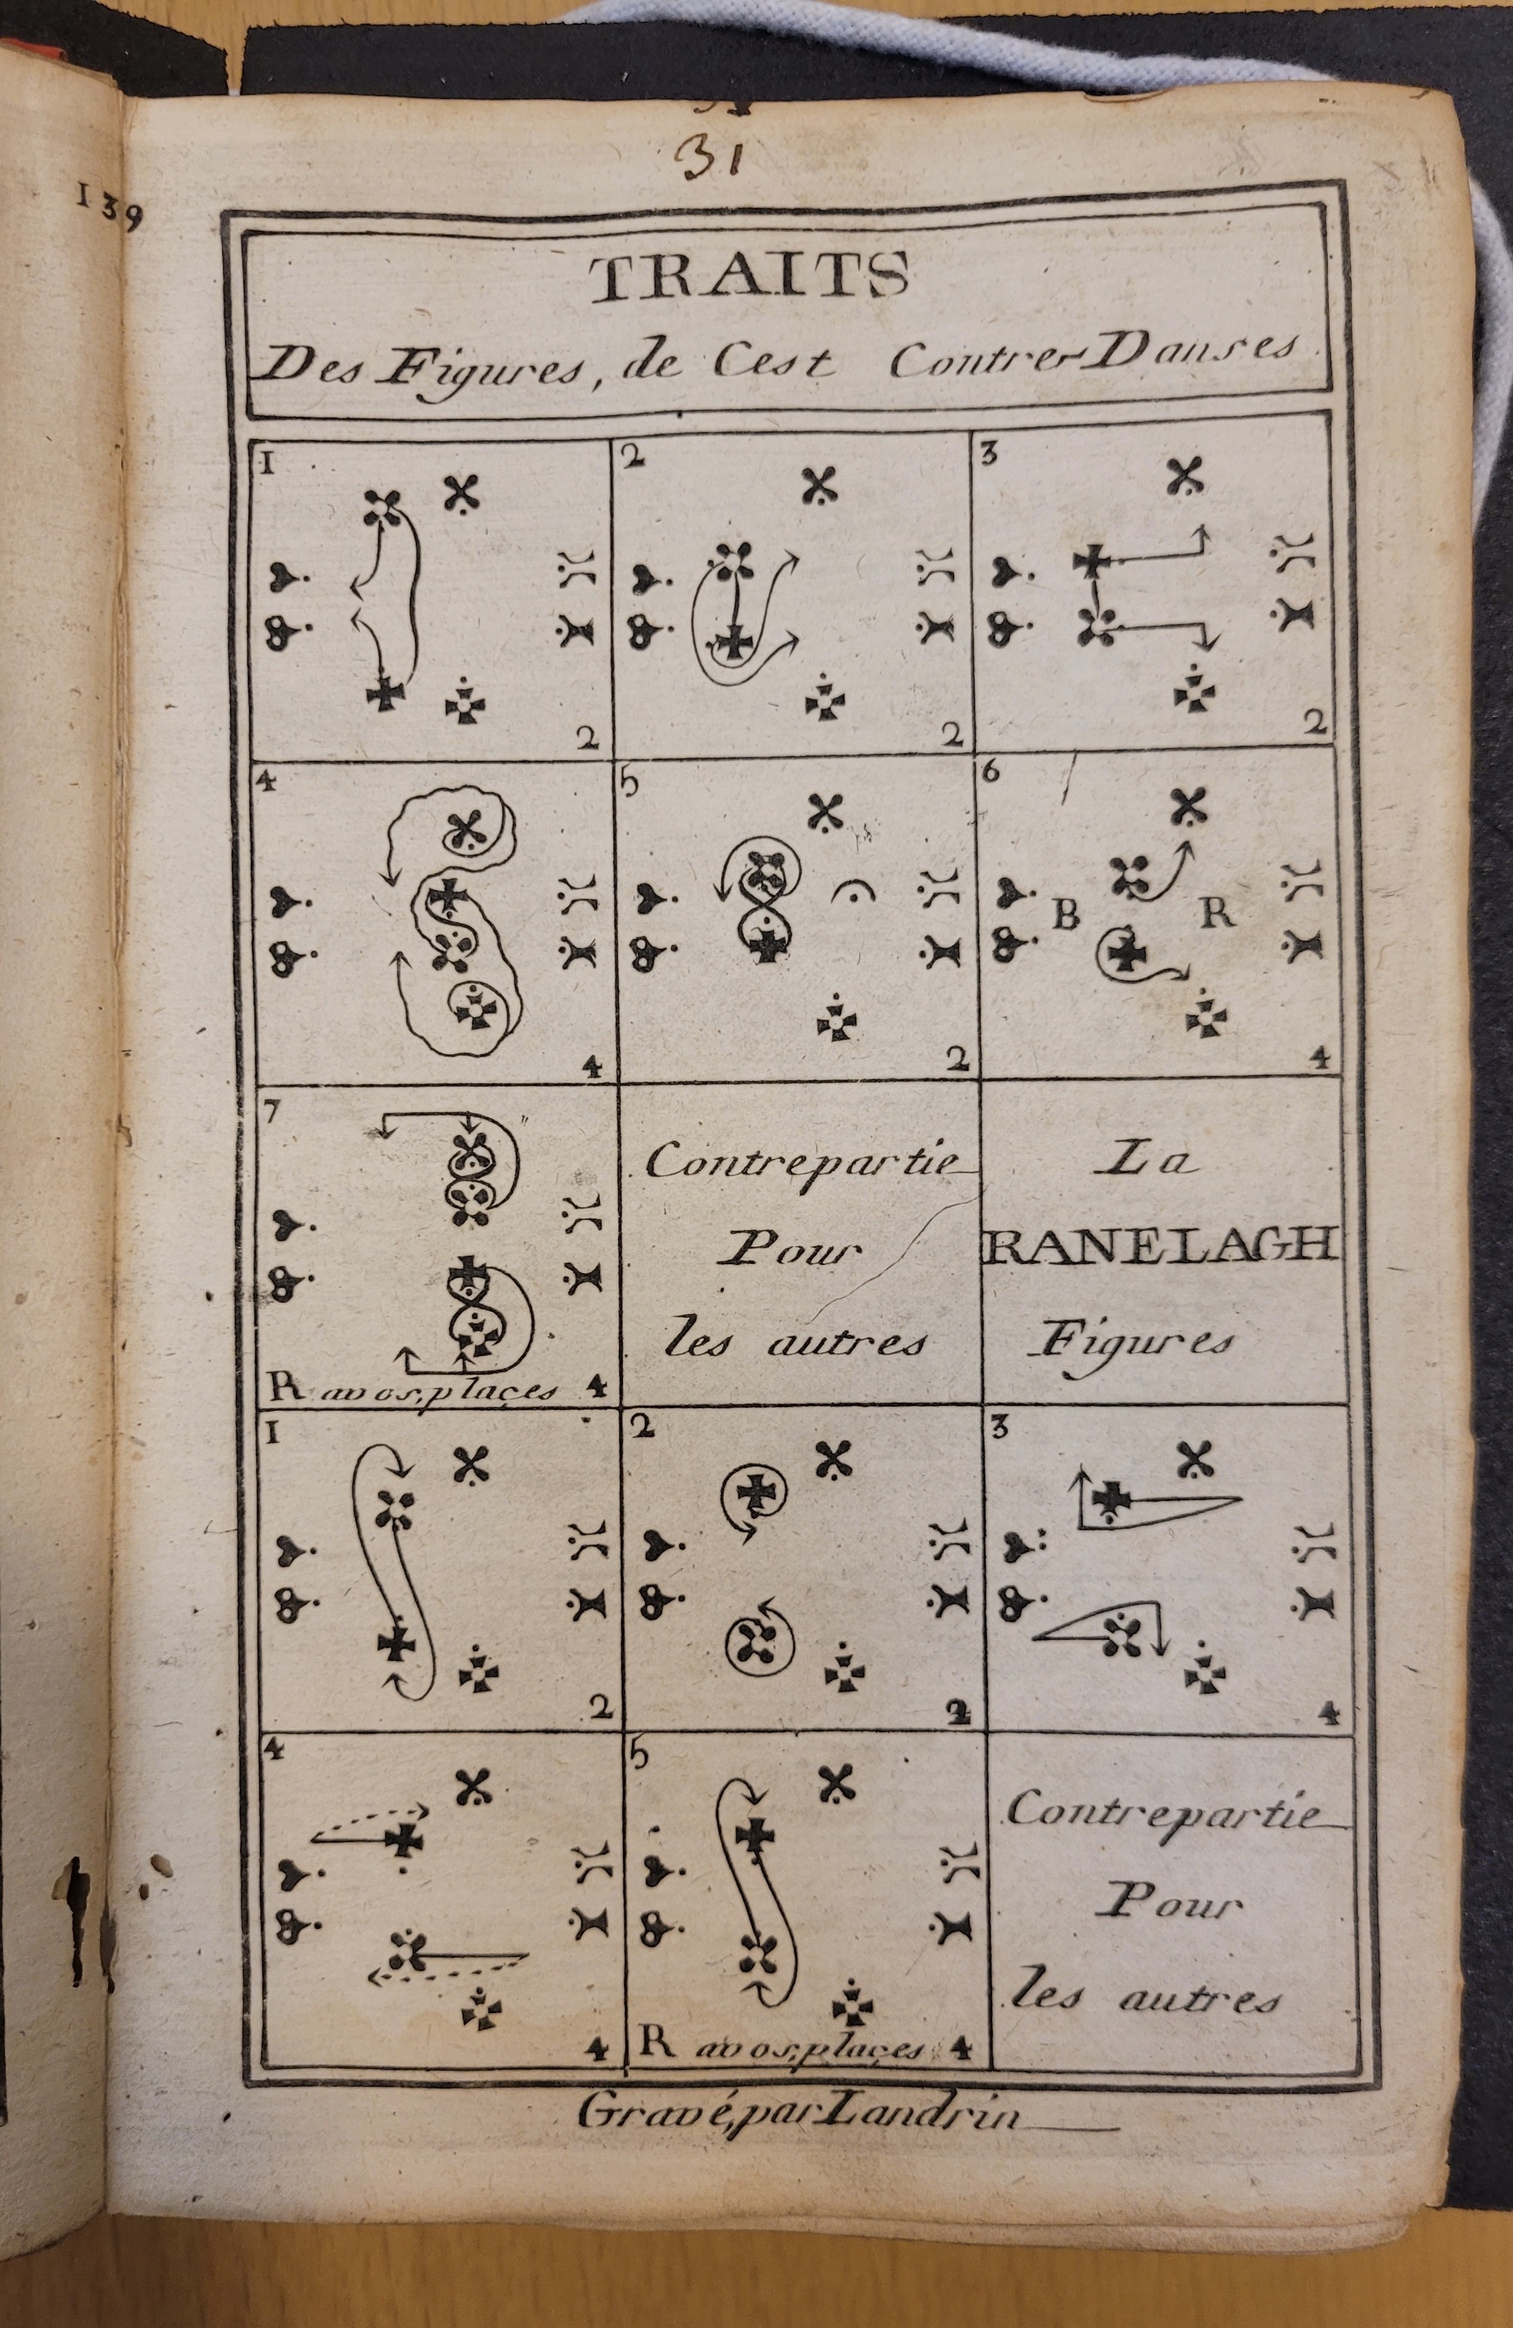 31
139
TRAITS
Des Figures, de Cest Contre-Danses
1
2
2
2
3
2
4
4
5
2
6
B R
4
7
R avos, places 4
Contrepartie
Pour
les autres
La
RANELAGH
Figures
1
2
2
2
3
4
4
4
5
R avos, places 4
Contrepartie
Pour
les autres
Gravé, par Landrin